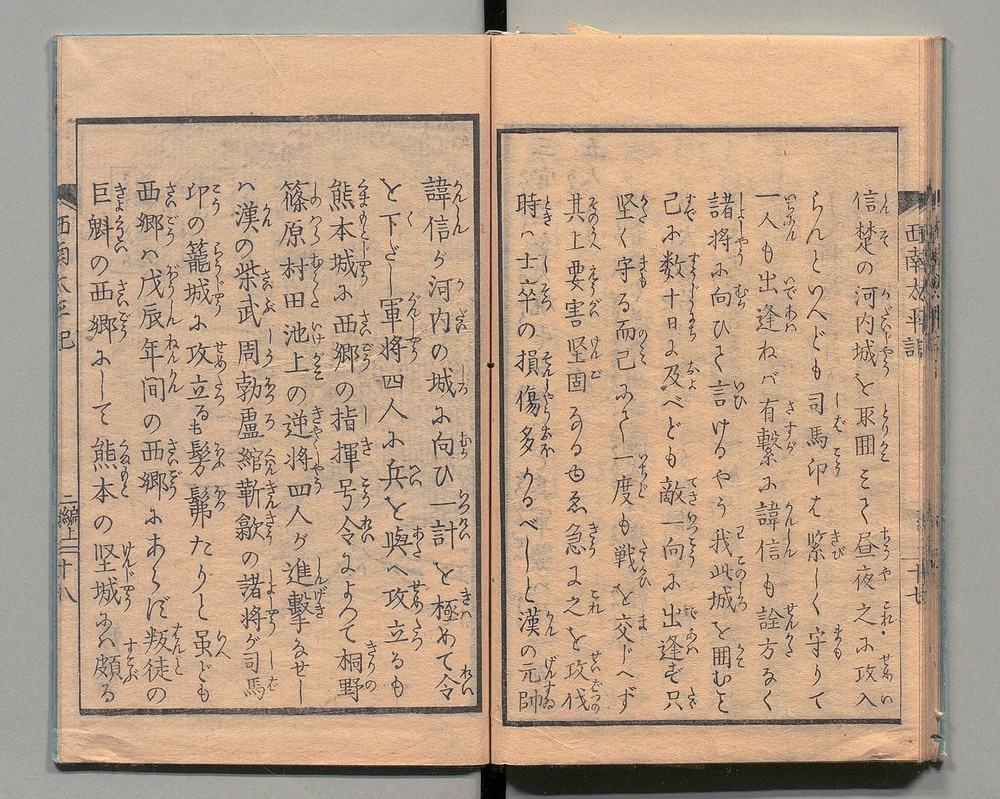 信楚の河内城を取囲ミて昼夜之ふ攻入
らんといへども司馬卬も緊しく守りて
一人も出逢ねバ有繋ふ諱信も詮方なく
諸将ふ向ひて言けるやう我此城を囲むと
己ふ数十日ふ及べども敵一向ふ出逢ず只
堅く守る而已ふて一度も戦を交じへず
其上要害堅固なるゆゑ急ふ之を攻伐
時ハ士卒の損傷多かるべしと漢の元帥
諱信が河内の城ふ向ひ一計を極めて令
を下だし軍将四人ふ兵を與へ攻立るも
熊本城ふ西郷の指揮号令によつて桐野
篠原村田池上の逆将四人が進撃なせし
ハ漢の柴武周勃盧綰靳歙の諸将が司馬
卬の籠城ふ攻立るも髣髴たりと虽ども
西郷ハ戊辰年间の西郷にあらバ叛徒の
巨魁の西郷にして熊本の堅城ふハ頗る
西南太平記
西南太平記
二編上
二十八